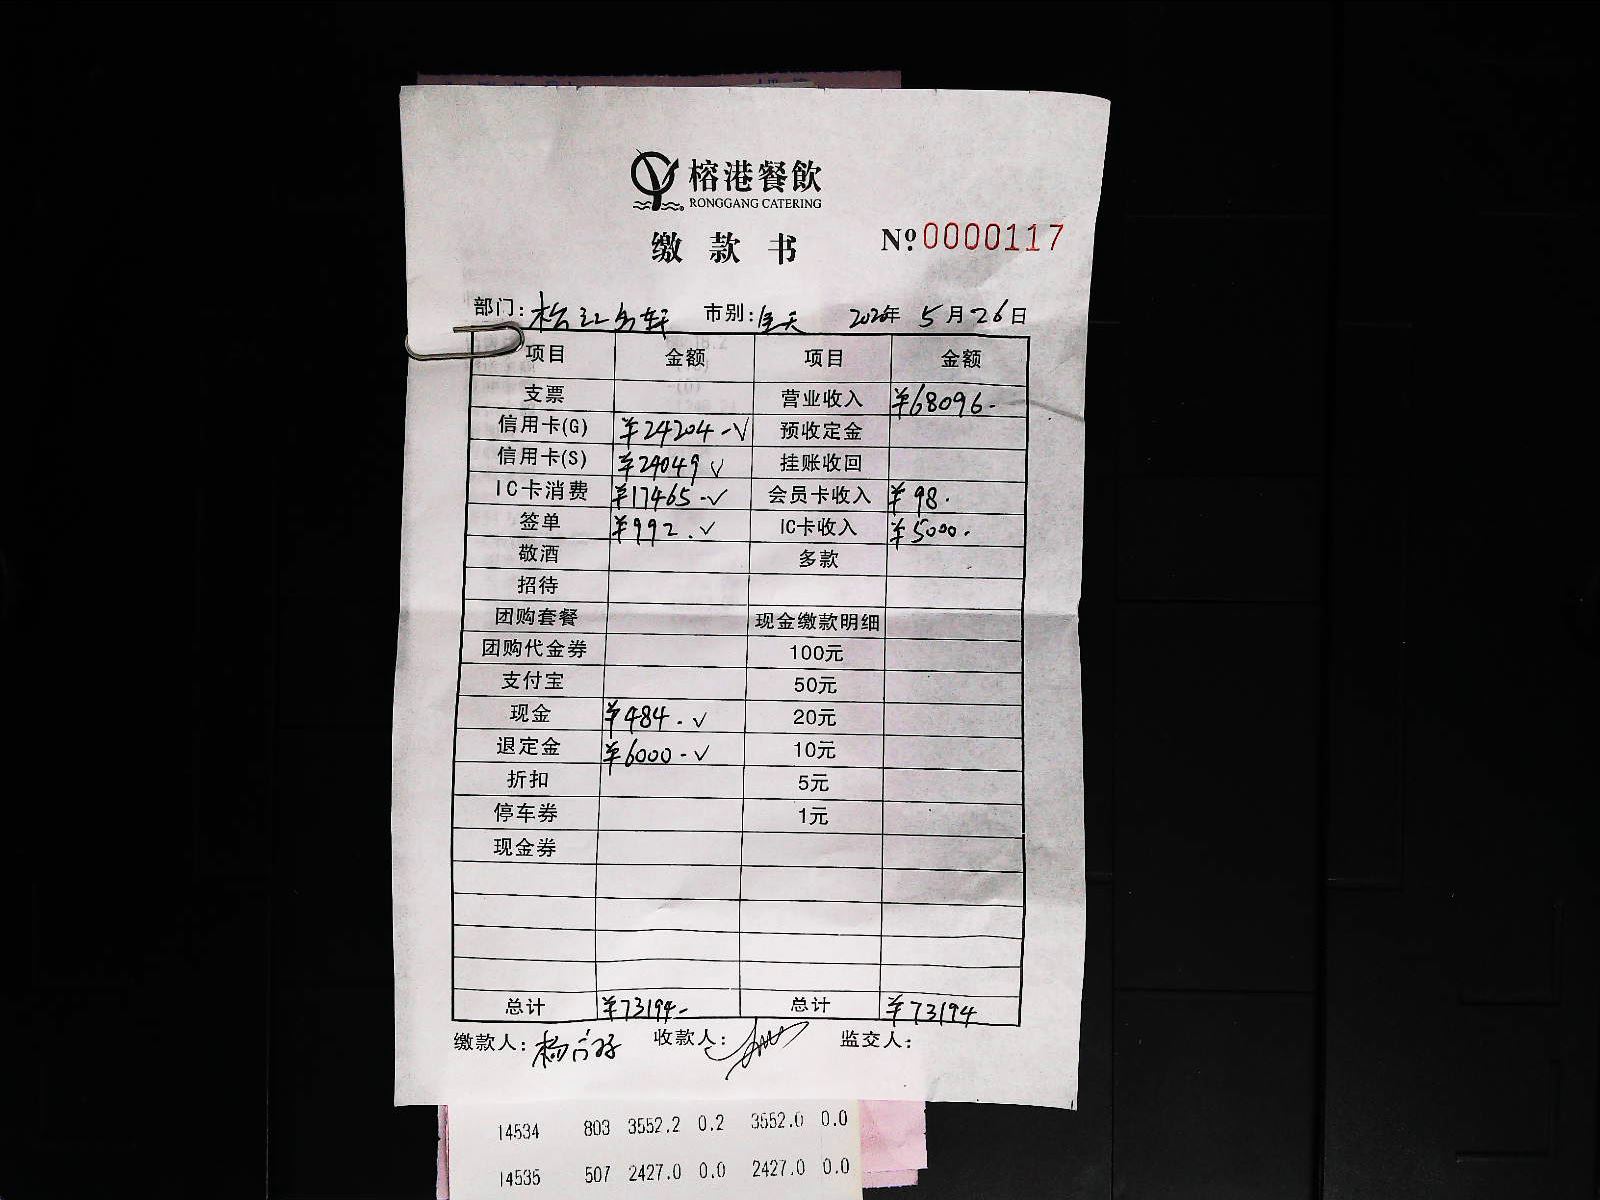 榕港餐飲
RONGGANG CATERING
缴款书 Nº.0000117
部门: 松江名轩 市别: 全天 2020年 5月26日
项目 金额 项目 金额
支票 营业收入 ¥68096-
信用卡(G) ¥24204-√ 预收定金
信用卡(S) ¥24049√ 挂账收回
IC卡消费 ¥17465-√ 会员卡收入 ¥98.
签单 ¥992.√ IC卡收入 ¥5000.
敬酒 多款
招待
团购套餐 现金缴款明细
团购代金券 100元
支付宝 50元
现金 ¥484.√ 20元
退定金 ¥6000-√ 10元
折扣 5元
停车券 1元
现金券
总计 ¥73194- 总计 ¥73194
缴款人: 杨 收款人: 监交人:
14534 803 3552.2 0.2 3552.0 0.0
14535 507 2427.0 0.0 2427.0 0.0